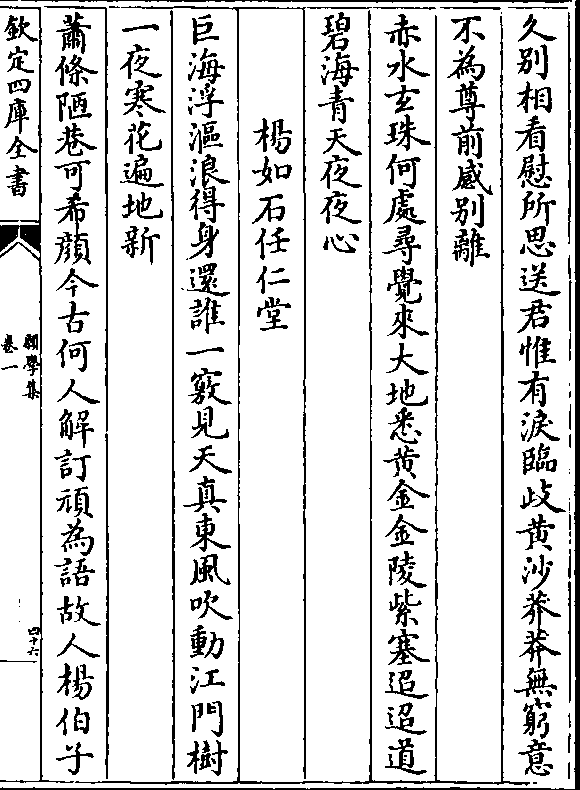 久别相看慰所思送君惟有淚臨歧黄沙莽莽無窮意
不為尊前感别離
赤水玄珠何處尋覺來大地悉黄金金陵紫塞迢迢道
碧海青天夜夜心
楊如石任仁堂
巨海浮漚浪得身還誰一竅見天真東風吹動江門樹
一夜寒花遍地新
蕭條陋巷可希顔今古何人解訂頑為語故人楊伯子
欽定四庫全書
願學集
卷一
四十六